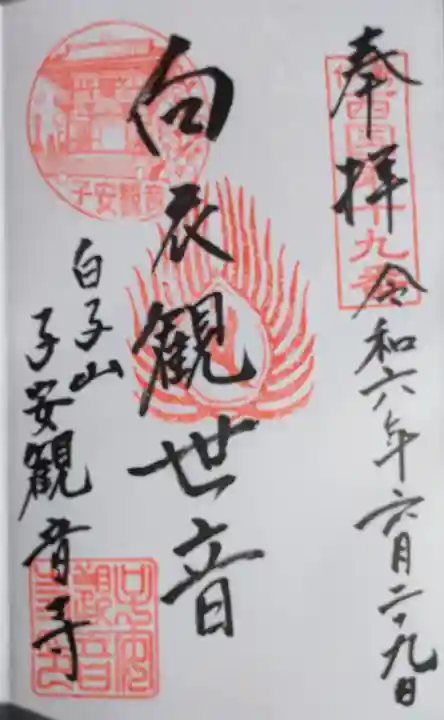 奉拝
西国第十九番
令和六年六月二十九日
白衣観世音
子安觀音
白子山
子安観音寺